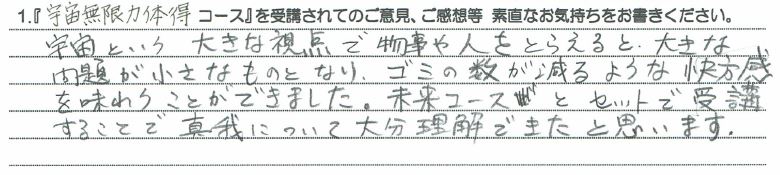 1.『宇宙無限力体得 コース』を受講されてのご意見、ご感想等 素直なお気持ちをお書きください。
宇宙という 大きな視点で物事や人をとらえると、大きな
問題が小さなものとなり、ゴミの数が減るような快方感
を味わうことができました。未来コースとセットで受講
することで真我について大分理解できたと思います。